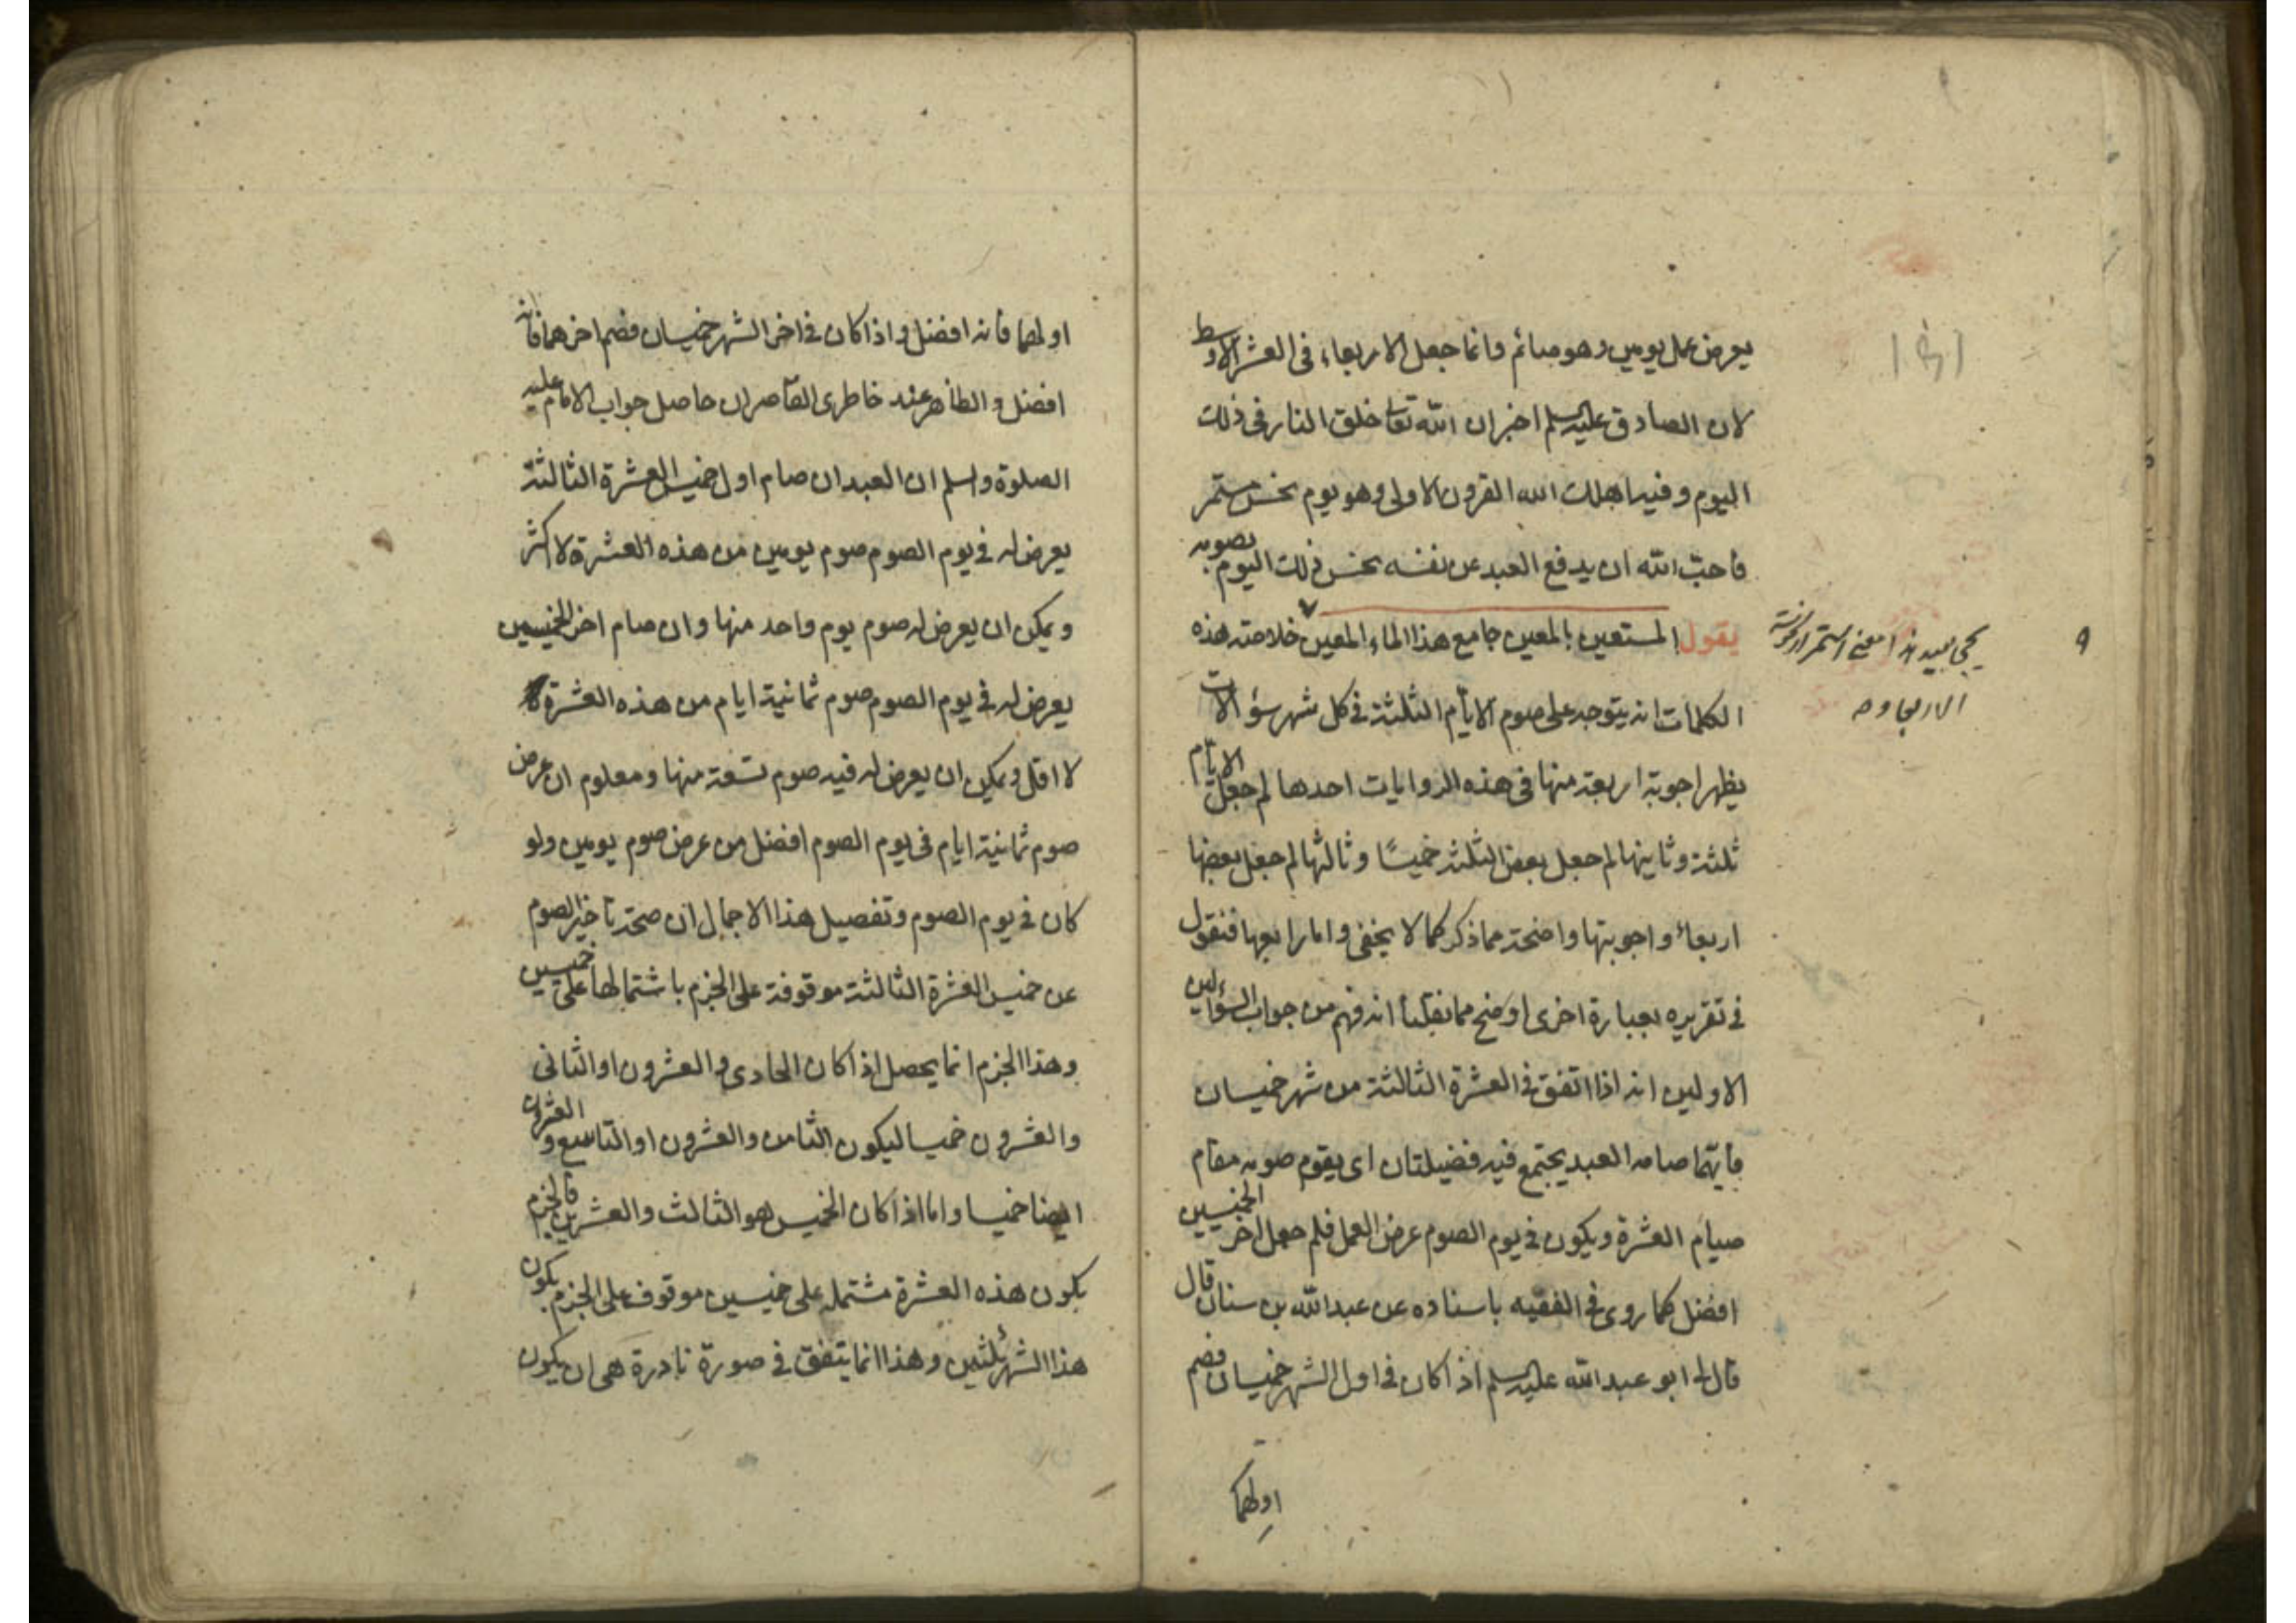 يعرض عمل يومين وهو صائم وانما جعل الاربعاء فى العشر الاوسط
لان الصادق عليه السلم اخبر ان الله تعالى خلق النار فى ذلك
اليوم وفيه اهلك الله القرون الاولى وهو يوم نحس مستمر
فاحب الله ان يدفع العبد عن نفسه نحس ذلك اليوم بصومه
يقول المستعين بالمعين جامع هذا الماء المعين خلاصة هذه
الكلمات انه يتوجه على صوم الايام الثلثة فى كل شهر سؤالات
يظهر اجوبة اربعة منها فى هذه الروايات احدها لم جعل الايام
ثلثة وثانيها لم جعل بعض الثلثة خميسًا وثالثها لم جعل بعضها
اربعاء واجوبتها واضحة مما ذكر كما لا يخفى واما رابعها فنقول
فى تقريره بعبارة اخرى اوضح مما نقلنا انه فهم من جواب السؤالين
الاولين انه اذا اتفق فى العشرة الثالثة من شهر خميسان
فايهما صامه العبد يجتمع فيه فضيلتان اى يقوم صومه مقام
صيام العشرة ويكون فى يوم الصوم عرض العمل فلم جعل اخر الخميسين
افضل كما روى فى الفقيه باسناده عن عبد الله بن سنان قال
قال لى ابو عبد الله عليه السلم اذا كان فى اول الشهر خميسان فصم
اولهما
معنى استمرار نحوسة
الاربعاء
اولهما فانه افضل واذا كان فى اخر الشهر خميسان فصم اخرهما فانه
افضل والظاهر عند خاطرى القاصر ان حاصل جواب الامام عليه
الصلوة والسلم ان العبد ان صام اول خميس العشرة الثالثة
يعرض له فى يوم الصوم صوم يومين من هذه العشرة لا اكثر
ويمكن ان يعرض له صوم يوم واحد منها وان صام اخر الخميسين
يعرض له فى يوم الصوم صوم ثمانية ايام من هذه العشرة
لا اقل ويمكن ان يعرض له فيه صوم تسعة منها ومعلوم ان عرض
صوم ثمانية ايام فى يوم الصوم افضل من عرض صوم يومين ولو
كان فى يوم الصوم وتفصيل هذا الاجمال ان صحة تاخير الصوم
عن خميس العشرة الثالثة موقوفة على الجزم باشتمالها على خميسين
وهذا الجزم انما يحصل اذا كان الحادى والعشرون او الثانى
والعشرون خميسا ليكون الثامن والعشرون او التاسع والعشرون
ايضا خميسا واما اذا كان الخميس هو الثالث والعشرين فالجزم
بكون هذه العشرة مشتملة على خميسين موقوف على الجزم بكون
هذا الشهر ثلثين وهذا انما يتفق فى صورة نادرة هى ان يكون